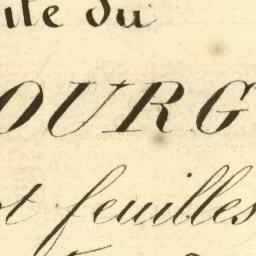 ite du
OURG
t feuilles